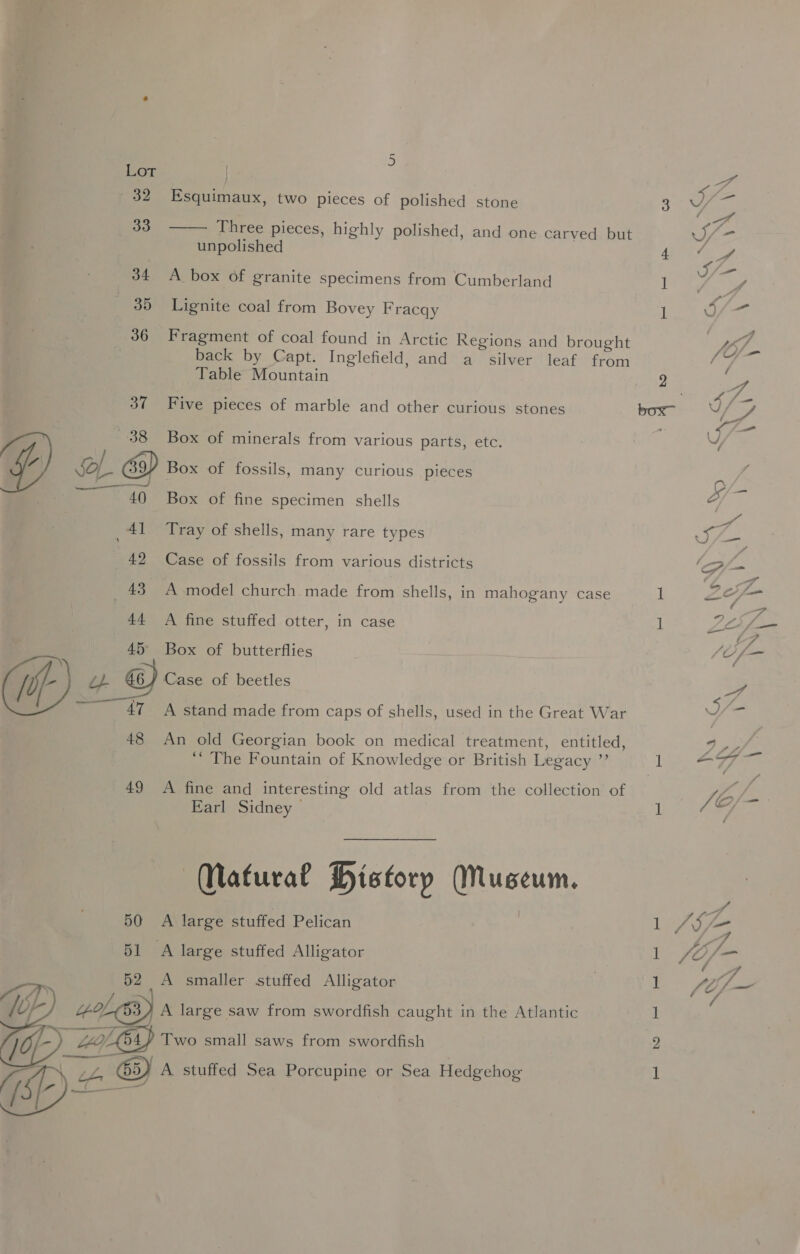 5
Lot
32 Esquimaux, two pieces of polished stone 3 5/-
33 —— Three pieces, highly polished, and one carved but 5/-
unpolished 4
34 A box of granite specimens from Cumberland 1 5/-
35 Lignite coal from Bovey Fracqy 1 5/-
36 Fragment of coal found in Arctic Regions and brought
back by Capt. Inglefield, and a silver leaf from 10/-
Table Mountain 2
37 Five pieces of marble and other curious stones box 5/-
38 Box of minerals from various parts, etc. 5/-
39 Box of fossils, many curious pieces
40 Box of fine specimen shells 8/-
41 Tray of shells, many rare types 5/-
42 Case of fossils from various districts
43 A model church made from shells, in mahogany case 1 20/-
44 A fine stuffed otter, in case 1 20/-
45 Box of butterflies 10/-
10/- 46 Case of beetles
47 A stand made from caps of shells, used in the Great War 5/-
48 An old Georgian book on medical treatment, entitled,
“ The Fountain of Knowledge or British Legacy ” 1
49 A fine and interesting old atlas from the collection of
Earl Sidney 1 10/-
Natural History Museum.
50 A large stuffed Pelican 1 15/-
51 A large stuffed Alligator 1 10/-
52 A smaller stuffed Alligator 1 10/-
10/- 53 A large saw from swordfish caught in the Atlantic 1
10/- 54 Two small saws from swordfish 2
15/- 55 A stuffed Sea Porcupine or Sea Hedgehog 1